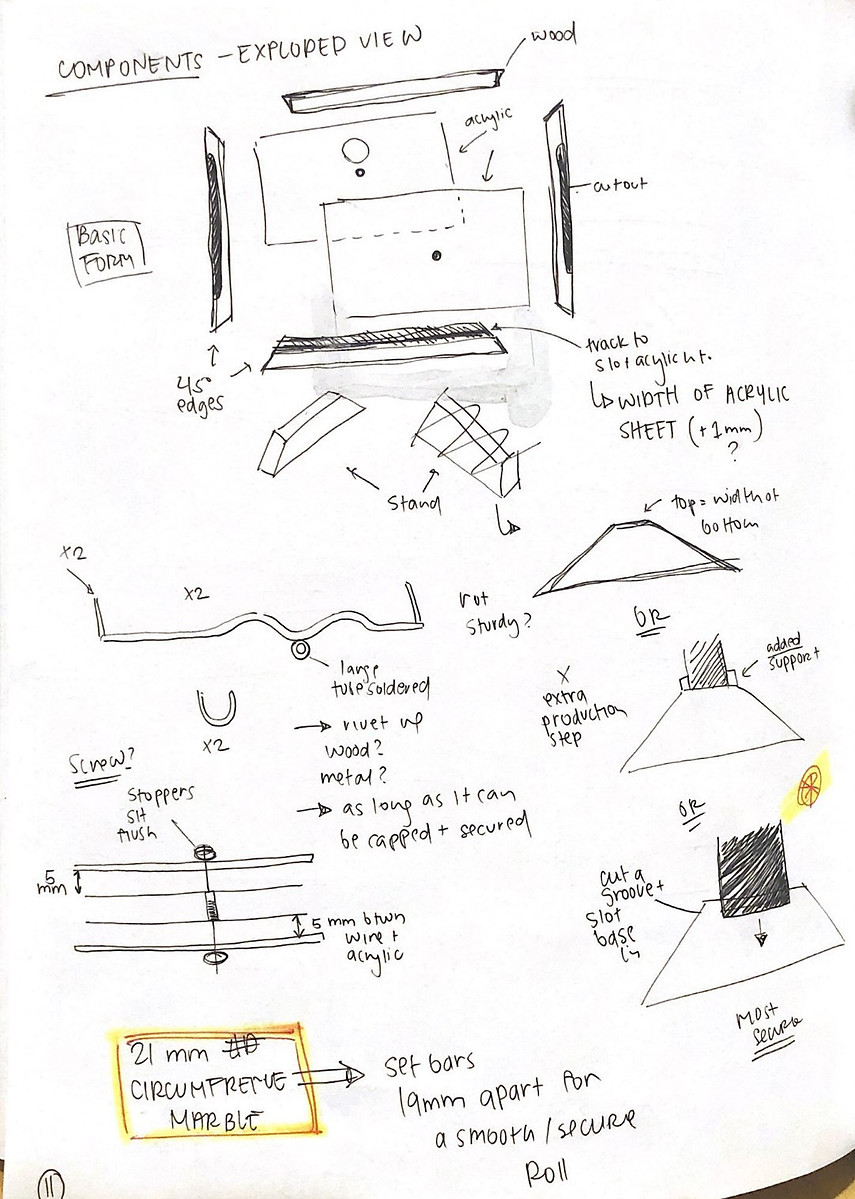 COMPONENTS - EXPLODED VIEW
wood
acrylic
cutout
BASIC
FORM
45°
edges
track to
slot acylic nt.
↳ WIDTH OF ACRYLIC
SHEET (+1mm)
?
Stand
top = width of
bottom
x2
x2
not
sturdy?
OR
large
tube soldered
added
support
X
extra
production
step
x2
→ rivet up
wood?
metal?
→ as long as it can
be capped + secured
Screw?
Stoppers
sit
flush
5
mm
5 mm btwn
wire +
acrylic
OR
cut a
groove +
slot
base
in
MOST
secure
21 mm
CIRCUMFRENCE
MARBLE
set bars
19mm apart for
a smooth/secure
Roll
11